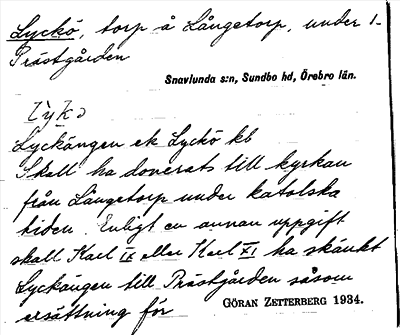 Lyckö, torp å Långetorp, under 1-
Prästgården
Snavlunda s:n, Sundbo hd, Örebro län.
lỳkə
Lyckängen ek Lyckö kb
Skall ha donerats till kyrkan
från Långetorp under katolska
tiden. Enligt en annan uppgift
skall Karl IX eller Karl XI ha skänkt
Lyckängen till Prästgården såsom
ersättning för
GÖRAN ZETTERBERG 1934.